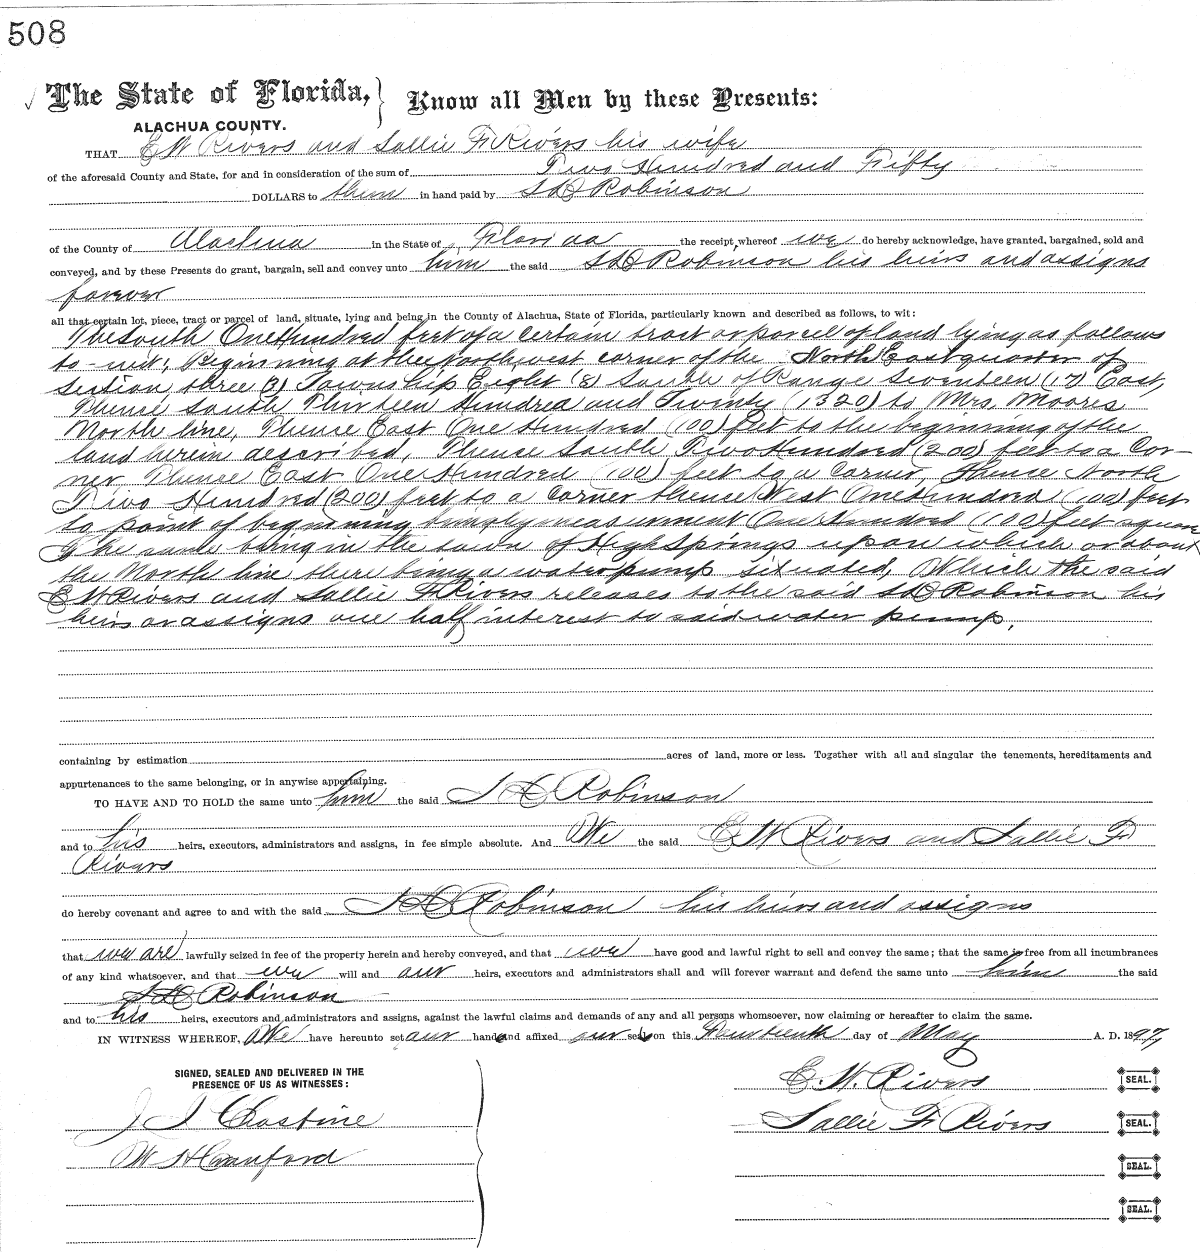 508
The State of Florida, } Know all Men by these Presents:
ALACHUA COUNTY.
THAT E W Rivers and Sallie F Rivers his wife
of the aforesaid County and State, for and in consideration of the sum of Two Hundred and Fifty
DOLLARS to them in hand paid by Robinson
of the County of Alachua in the State of Florida the receipt whereof we do hereby acknowledge, have granted, bargained, sold and
conveyed, and by these Presents do grant, bargain, sell and convey unto him the said Robinson his heirs and assigns
forever
all that certain lot, piece, tract or parcel of land, situate, lying and being in the County of Alachua, State of Florida, particularly known and described as follows, to wit:
The south One Hundred feet of a certain tract or parcel of land lying as follows
to-wit; Beginning at the Northwest corner of the North East quarter of
Section three (3) Township Eight (8) South of Range Seventeen (17) East,
Thence South Thirteen Hundred and Twenty (1320) to Mrs. Moores
North line, Thence East One Hundred (100) feet to the beginning of the
land herein described, Thence South Two Hundred (200) feet to a Cor-
ner Thence East One Hundred (100) feet to a Corner, Thence North
Two Hundred (200) feet to a Corner thence West One Hundred (100) feet
to point of beginning, simply measurement One Hundred (100) feet square
The same being in the town of High Springs upon which or about
the North line there being a water pump situated, Which the said
E W Rivers and Sallie F Rivers releases to the said Robinson his
heirs or assigns one half interest to said water pump.
containing by estimation acres of land, more or less. Together with all and singular the tenements, hereditaments and
appurtenances to the same belonging, or in anywise appertaining.
TO HAVE AND TO HOLD the same unto him the said Robinson
and to his heirs, executors, administrators and assigns, in fee simple absolute. And We the said E W Rivers and Sallie F
Rivers
do hereby covenant and agree to and with the said Robinson his heirs and assigns
that we are lawfully seized in fee of the property herein and hereby conveyed, and that we have good and lawful right to sell and convey the same; that the same is free from all incumbrances
of any kind whatsoever, and that we will and our heirs, executors and administrators shall and will forever warrant and defend the same unto him the said
Robinson
and to his heirs, executors and administrators and assigns, against the lawful claims and demands of any and all persons whomsoever, now claiming or hereafter to claim the same.
IN WITNESS WHEREOF, We have hereunto set our hand and affixed our seal on this Fourteenth day of May A. D. 1897
SIGNED, SEALED AND DELIVERED IN THE
PRESENCE OF US AS WITNESSES:
E. W. Rivers SEAL.
J J Costine
Sallie F Rivers SEAL.
W H Cranford
SEAL.
SEAL.